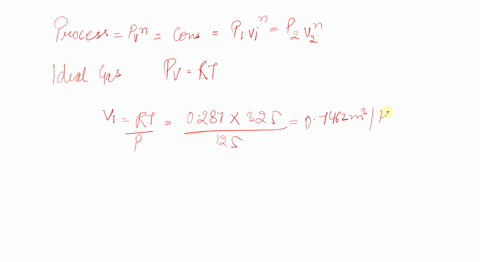 Process = Pvⁿ = Cons = P₁v₁ⁿ = P₂v₂ⁿ
Ideal Gas Pv = RT
V₁ = RT/P = 0.287 × 325/125 = 0.7462 m³/